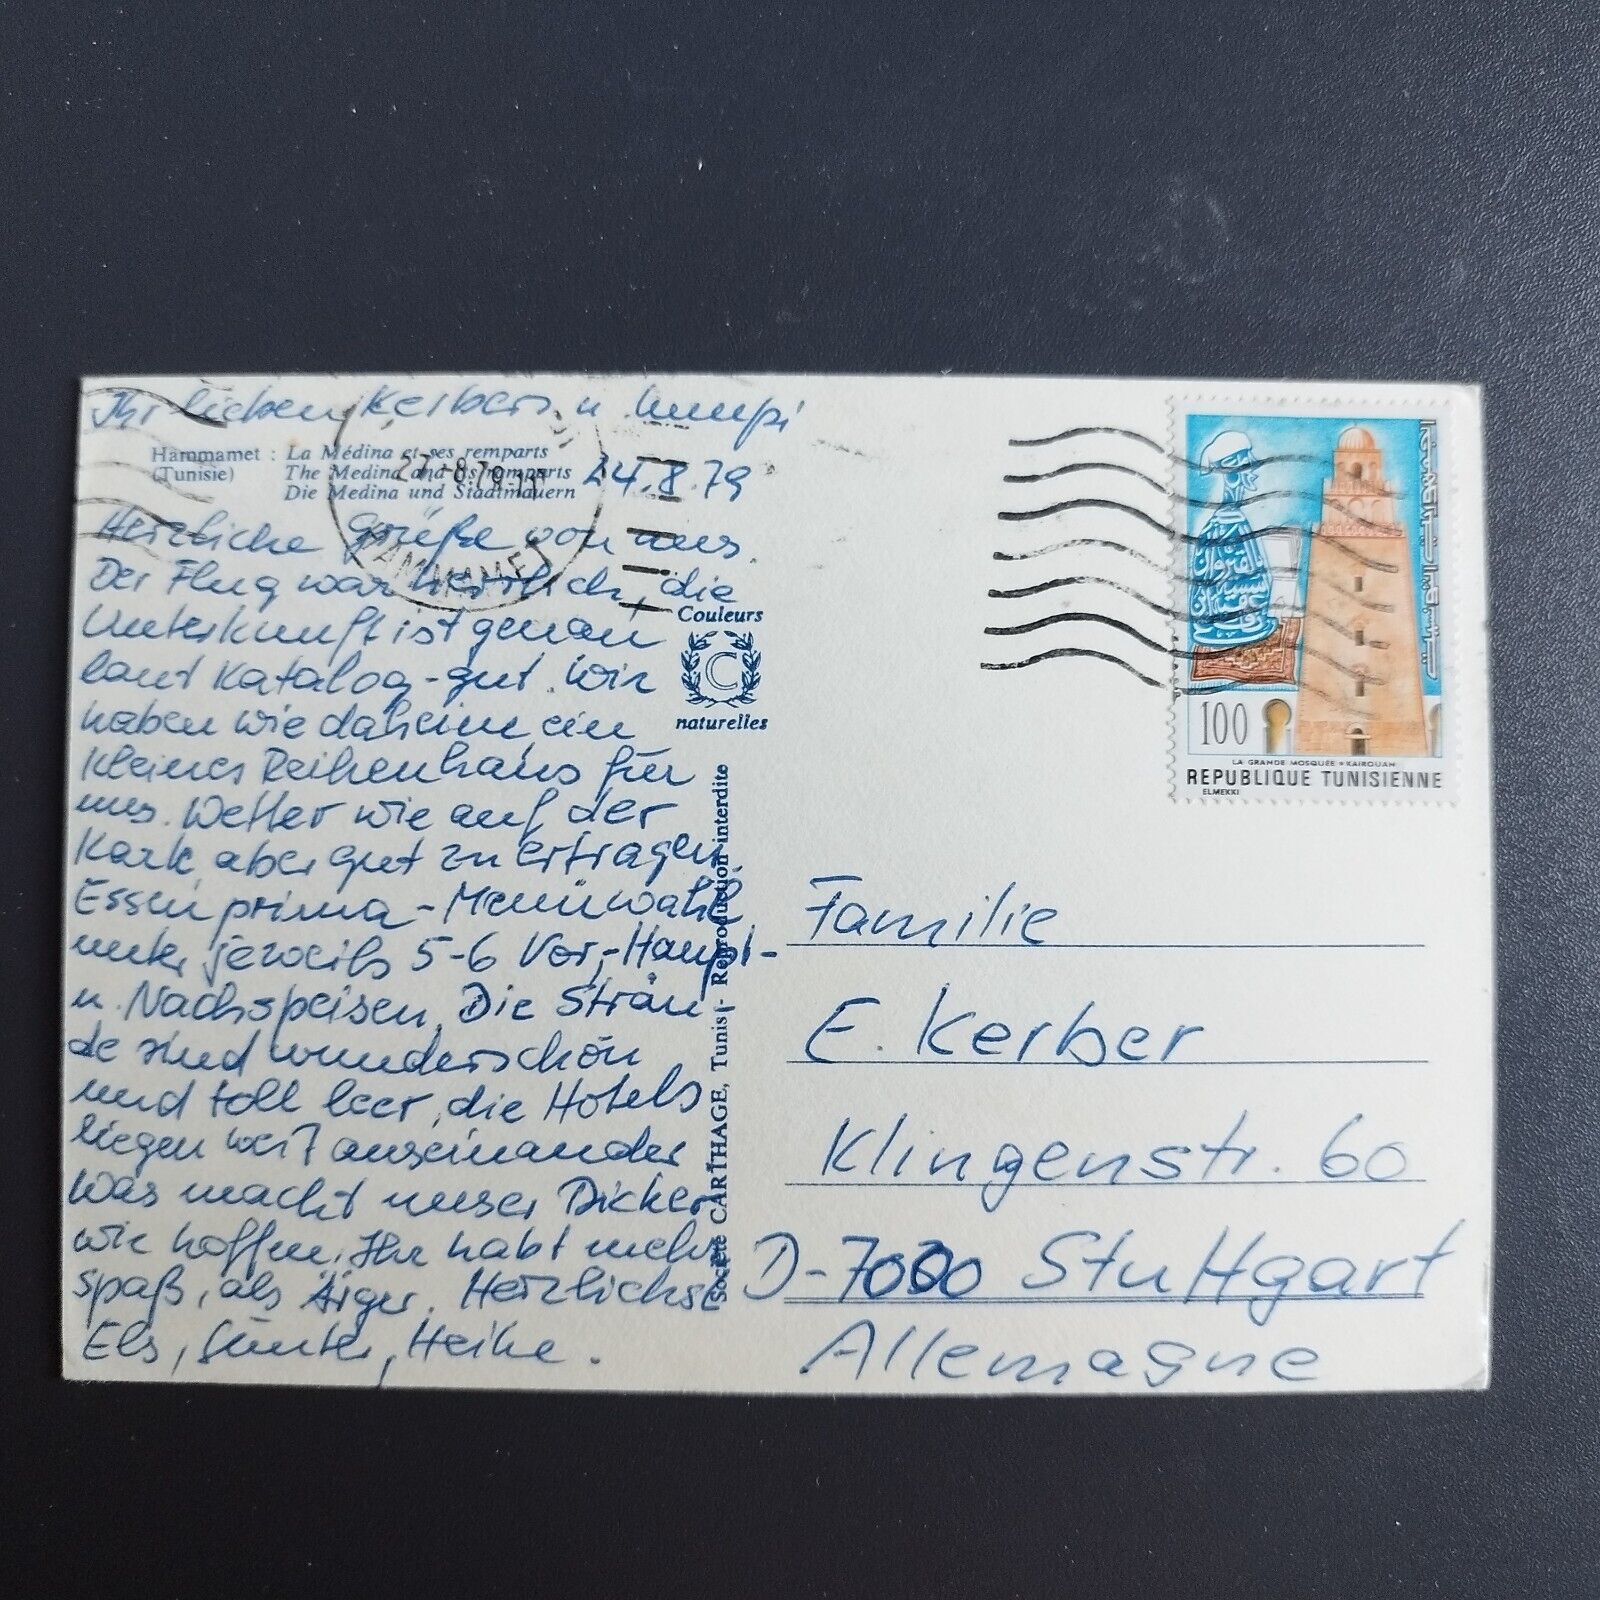 Ihr lieben Kerbers u. Mumpi
Hammamet : La Médina et ses remparts
(Tunisie) The Medina and its remparts
Die Medina und Stadtmauern
24.8.79
27-8.79
HAMMAMET
Herzliche Grüße von uns.
Der Flug war herrlich, die
Unterkunft ist genau
laut Katalog-gut. Wir
haben wie daheim ein
kleines Reihenhaus für
uns. Wetter wie auf der
Kark, aber gut zu ertragen.
Essen prima - Menüwahl
unter jeweils 5-6 Vor,-Haupt-
u. Nachspeisen. Die Strän-
de sind wunderschön
und toll leer, die Hotels
liegen weit auseinander
Was macht unser Dicker
wir hoffen, Ihr habt mehr
Spaß, als Ärger. Herzlichst
Els, Günter, Heike.
Couleurs
C
naturelles
Société CARTHAGE, Tunis - Reproduction interdite
100
LA GRANDE MOSQUÉE * KAIROUAN
REPUBLIQUE TUNISIENNE
ELMEKKI
Familie
E. Kerber
Klingenstr. 60
D-7000 Stuttgart
Allemagne